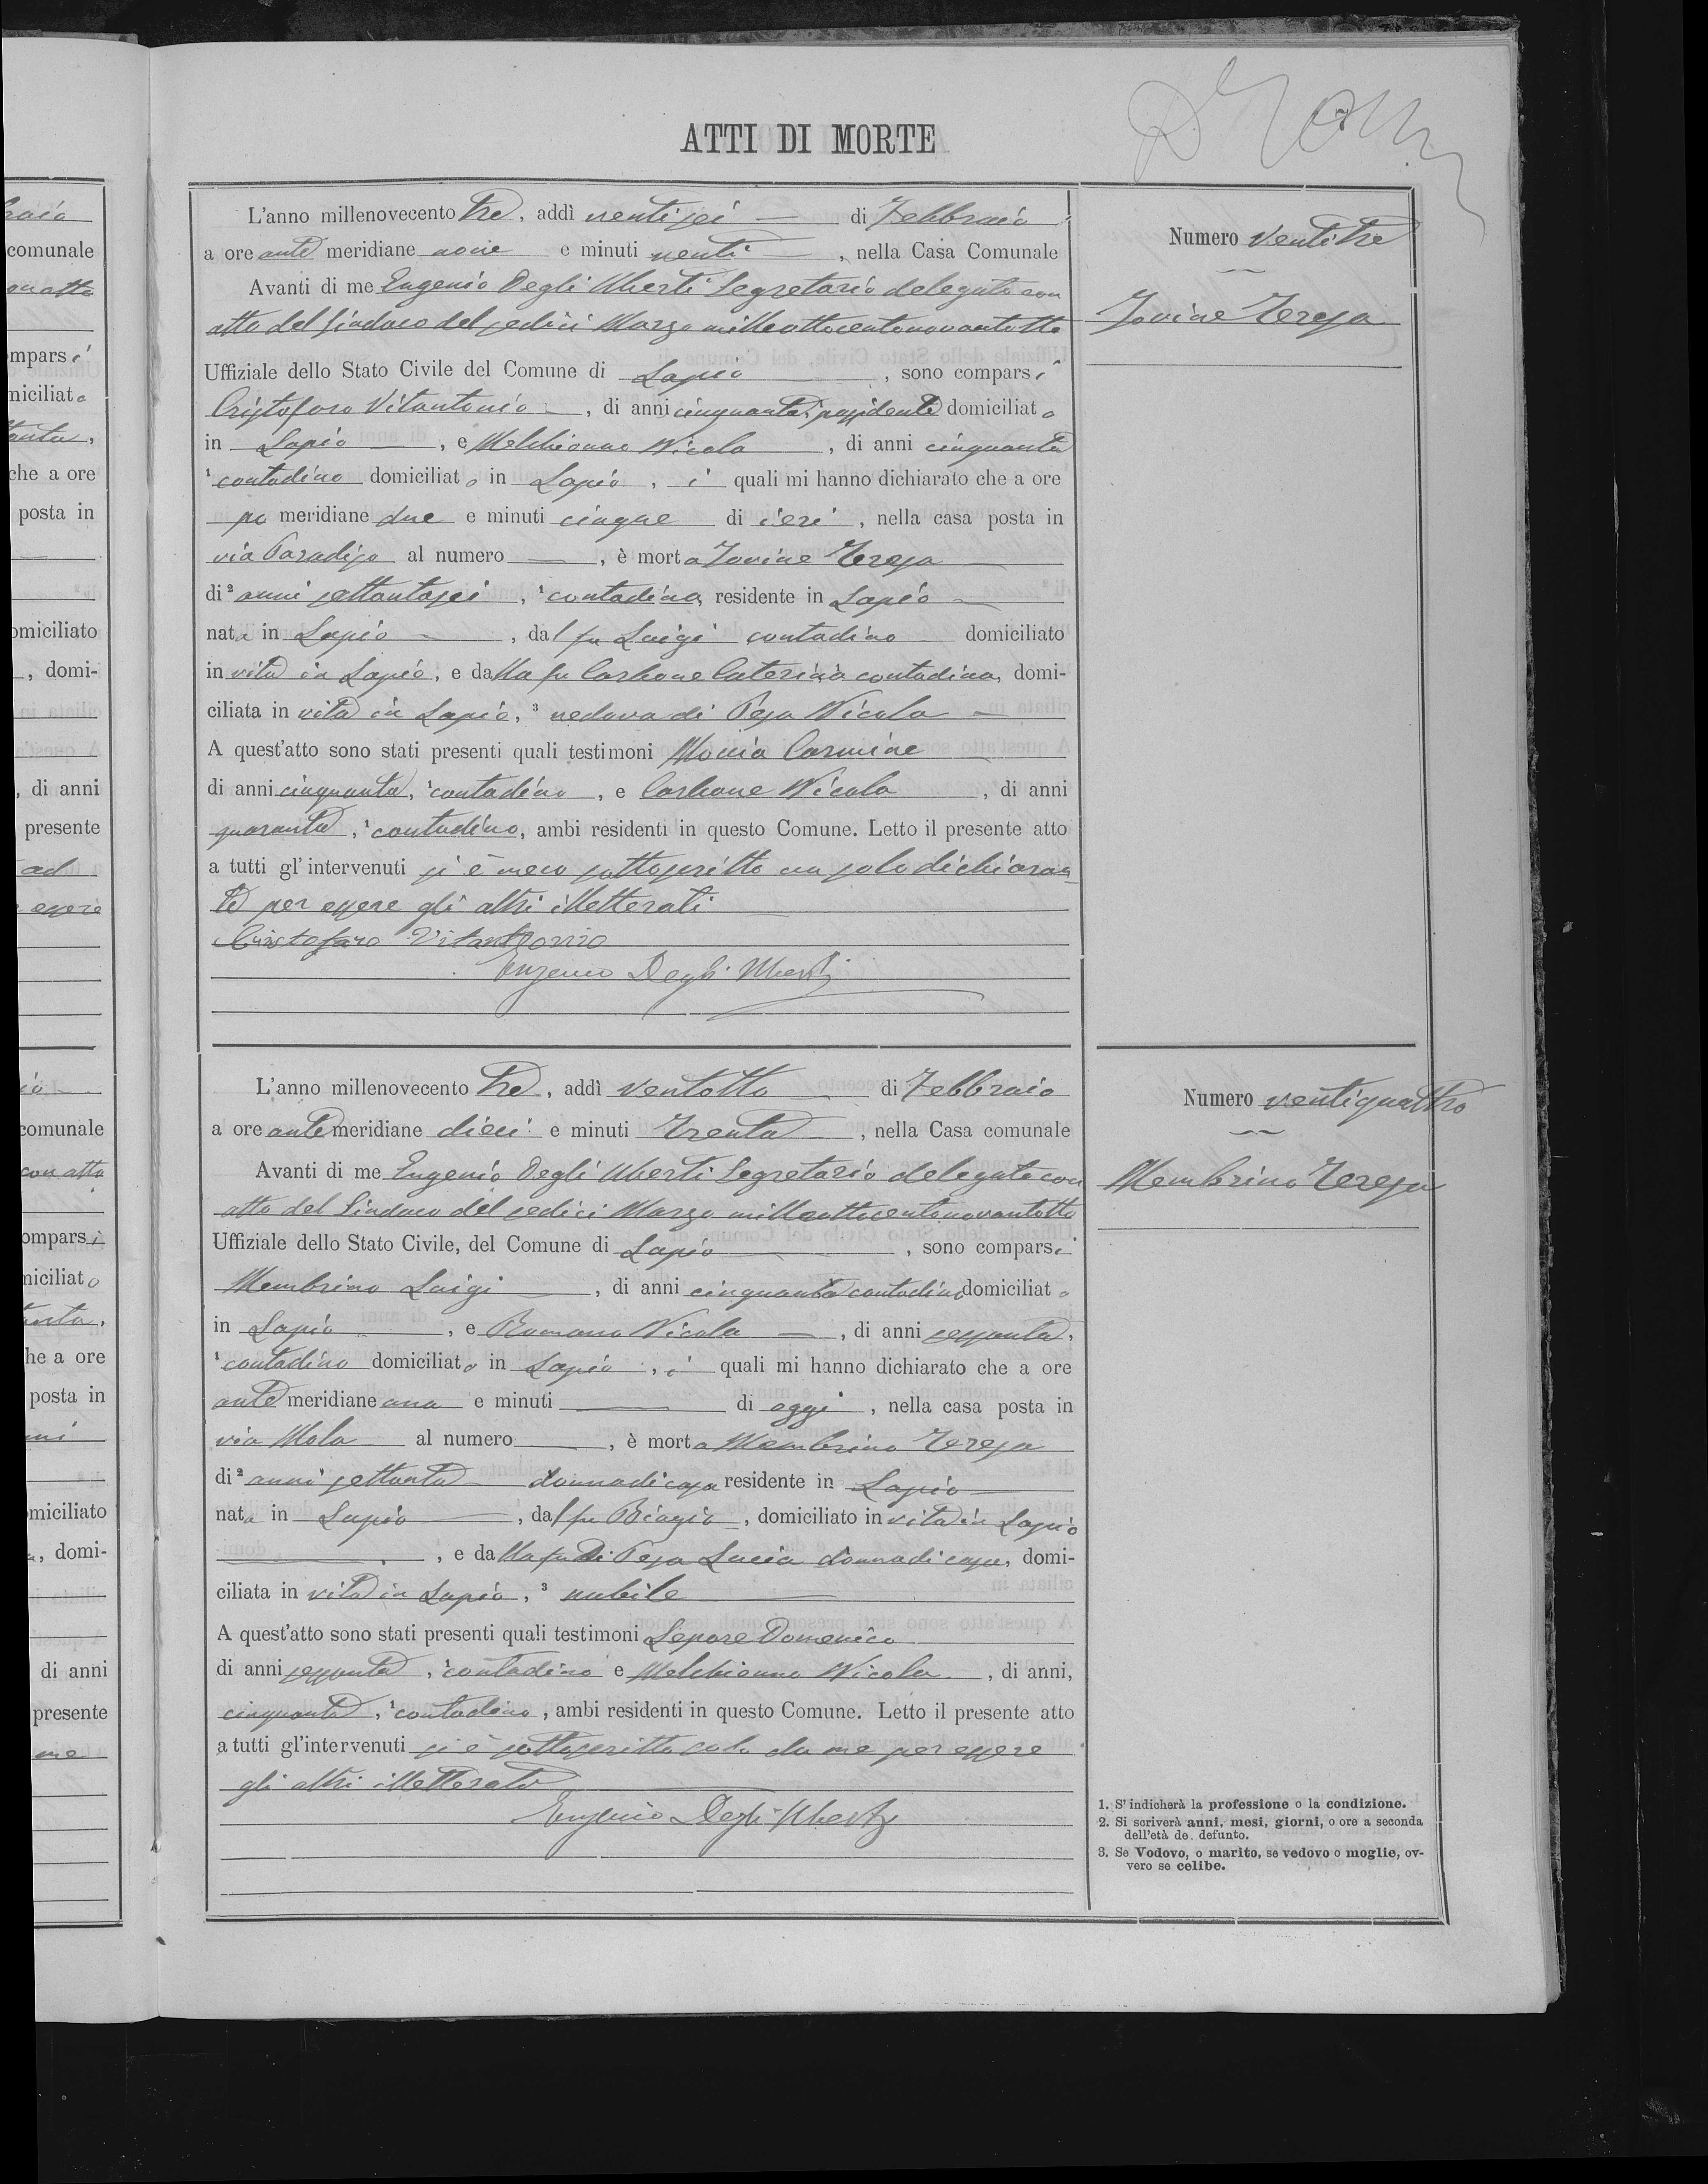 ATTI DI MORTE
L'anno millenovecento tre, addì ventisei di Febbraio
a ore ante meridiane nove e minuti venti, nella Casa Comunale
Avanti di me Eugenio Degli Uberti Segretario delegato con
atto del Sindaco del sedici Marzo milleottocentonovantotto
Uffiziale dello Stato Civile del Comune di Lapio, sono comparsi
Cristofaro Vitantonio, di anni cinquanta, possidente domiciliato
in Lapio, e Melchionno Nicola, di anni cinquanta
¹ contadino domiciliato in Lapio, i quali mi hanno dichiarato che a ore
po meridiane due e minuti cinque di ieri, nella casa posta in
via Paradiso al numero, è morta Iovine Teresa
di ² anni settantasei, ¹ contadina, residente in Lapio
nata in Lapio, dal fu Luigi contadino domiciliato
in vita in Lapio, e dalla fu Carbone Caterina contadina, domi-
ciliata in vita in Lapio, ³ vedova di Pesa Nicola
A quest'atto sono stati presenti quali testimoni Carmine
di anni cinquanta, ¹ contadino, e Carbone Nicola, di anni
quaranta, ¹ contadino, ambi residenti in questo Comune. Letto il presente atto
a tutti gl'intervenuti si è meco sottoscritto un solo dichiaran-
te per essere gli altri illetterati
Cristofaro Vitantonio
Eugenio Degli Uberti
Numero ventitre
Iovine Teresa
L'anno millenovecento tre, addì ventotto di Febbraio
a ore ante meridiane dieci e minuti trenta, nella Casa comunale
Avanti di me Eugenio Degli Uberti Segretario delegato con
atto del Sindaco del sedici Marzo milleottocentonovantotto
Uffiziale dello Stato Civile, del Comune di Lapio, sono comparsi
Membrino Luigi, di anni cinquanta contadino domiciliato
in Lapio, e Romano Nicola, di anni sessanta,
¹ contadino domiciliato in Lapio, i quali mi hanno dichiarato che a ore
ante meridiane una e minuti di oggi, nella casa posta in
via Mola al numero, è morta Membrino Teresa
di ² anni settanta donna di casa residente in Lapio
nata in Lapio, dal fu Biagio, domiciliato in vita in Lapio
, e dalla fu Di Pesa Lucia donna di casa, domi-
ciliata in vita in Lapio, ³ nubile
A quest'atto sono stati presenti quali testimoni Lepore Domenico
di anni sessanta, ¹ contadino e Melchionno Nicola, di anni,
cinquanta, ¹ contadino, ambi residenti in questo Comune. Letto il presente atto
a tutti gl'intervenuti si è sottoscritto solo da me per essere
gli altri illetterati
Eugenio Degli Uberti
Numero ventiquattro
Membrino Teresa
1. S'indicherà la professione o la condizione.
2. Si scriverà anni, mesi, giorni, o ore a seconda
dell'età de. defunto.
3. Se Vodovo, o marito, se vedovo o moglie, ov-
vero se celibe.